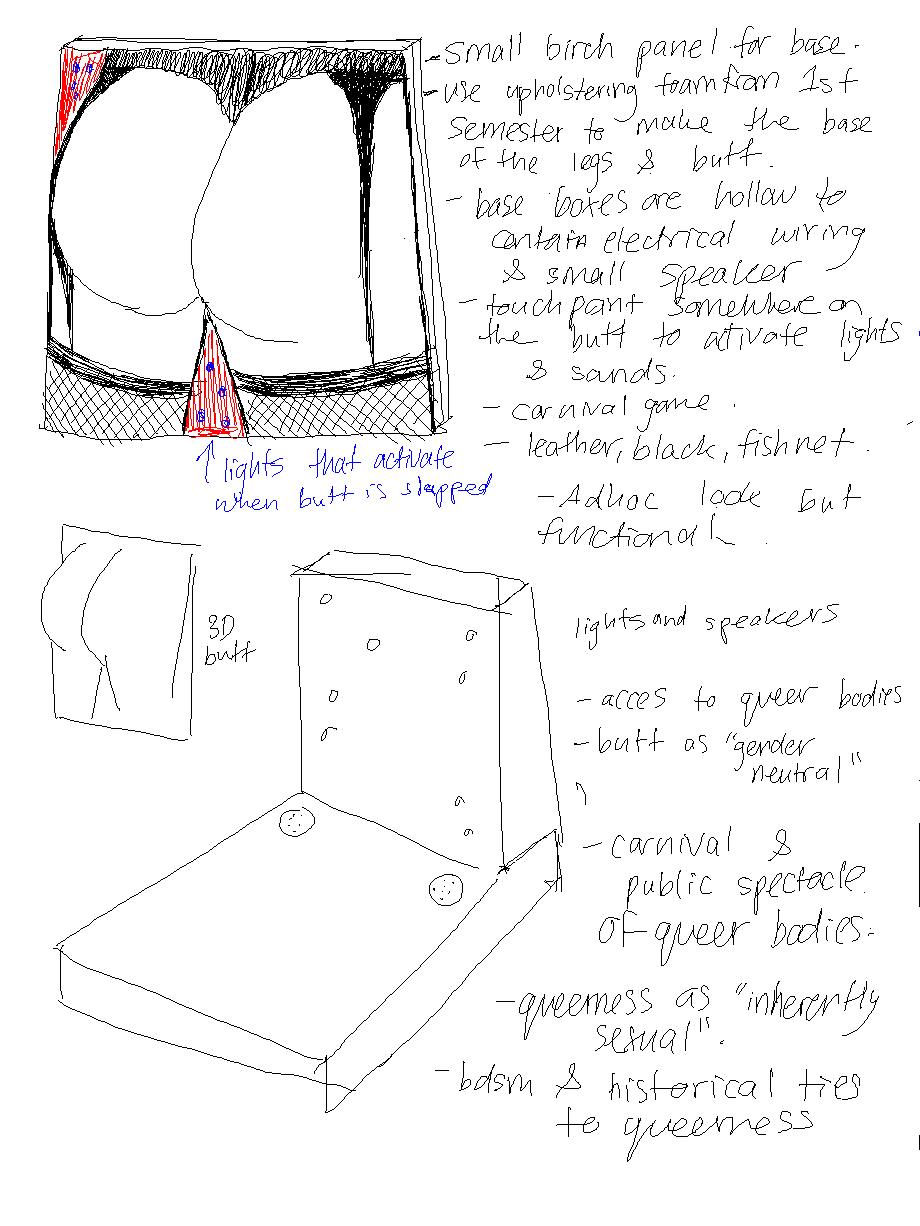 - small birch panel for base.
- use upholstering foam from 1st
semester to make the base
of the legs & butt.
- base boxes are hollow to
contain electrical wiring
& small speaker
- touchpaint somewhere on
the butt to activate lights
& sands.
- carnival game.
- leather, black, fishnet.
- Adhoc look but
functional.
↑ lights that activate
when butt is slapped
3D
butt
lights and speakers
- acces to queer bodies
- butt as "gender
neutral"
- carnival &
public spectacle
of queer bodies.
- queerness as "inherently
sexual".
- bdsm & historical ties
to queerness